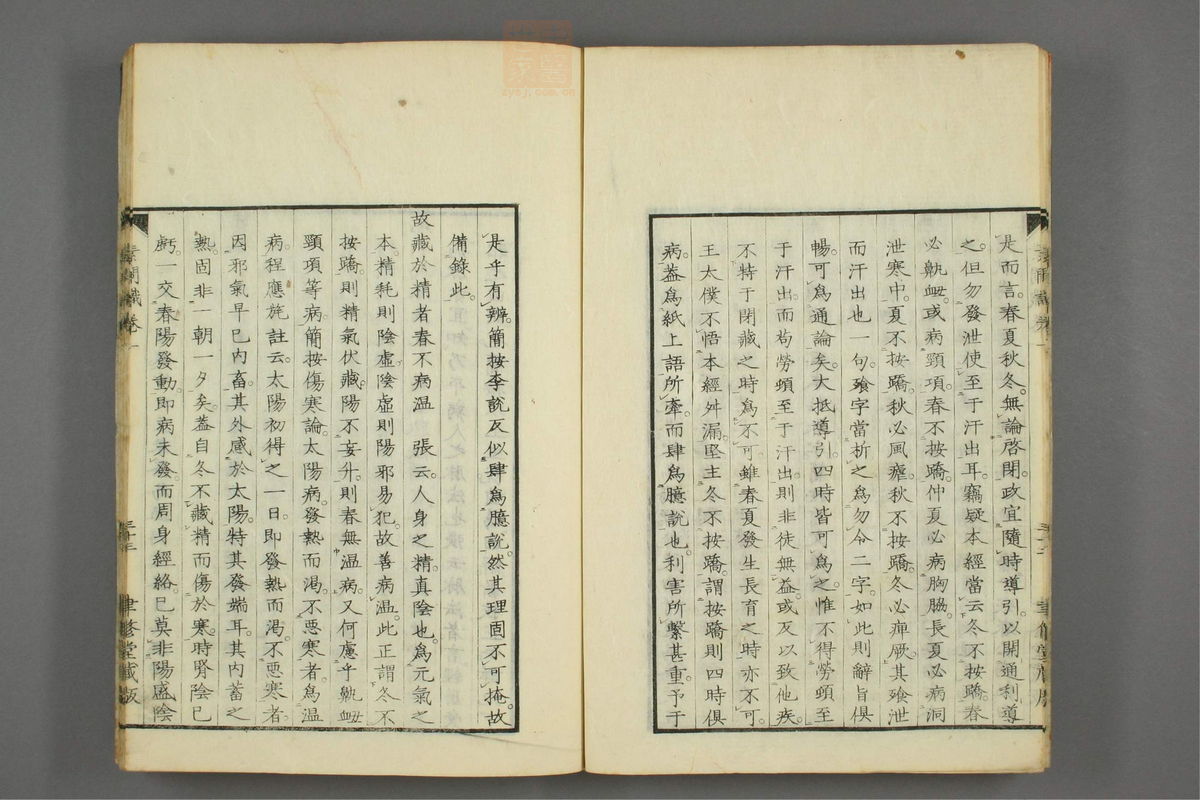 是而言春夏秋冬無論啓閉政宜隨時導引以開通利導
之但勿發泄使至于汗出耳竊疑本經當云冬不按蹻春
必鼽衂或病頸項春不按蹻仲夏必病胸脇長夏必病洞
泄寒中夏不按蹻秋必風瘧秋不按蹻冬必痺厥其飱泄
而汗出也一句飱字當析之爲勿令二字如此則辭旨俱
暢可爲通論矣大抵導引四時皆可爲之惟不得勞頓至
于汗出而苟勞頓至于汗出則非徒無益或反以致他疾
不特于閉藏之時爲不可雖春夏發生長育之時亦不可
王太僕不悟本經舛漏堅主冬不按蹻謂按蹻則四時俱
病葢爲紙上語所牽而肆爲臆說也利害所繫甚重予于
是乎有辨簡按李說反似肆爲臆說然其理固不可掩故
備錄此
故藏於精者春不病温 張云人身之精真陰也爲元氣之
本精耗則陰虛陰虛則陽邪易犯故善病温此正謂冬不
按蹻則精氣伏藏陽不妄升則春無温病又何慮乎鼽衂
頸項等病簡按傷寒論太陽病發熱而渴不惡寒者爲温
病程應旄註云太陽初得之一日即發熱而渴不惡寒者
因邪氣早已内畜其外感於太陽特其發端耳其内蓄之
熱固非一朝一夕矣葢自冬不藏精而傷於寒時腎陰已
虧一交春陽發動即病未發而周身經絡已莫非陽盛陰
素問識卷一
三十三
聿修堂藏版